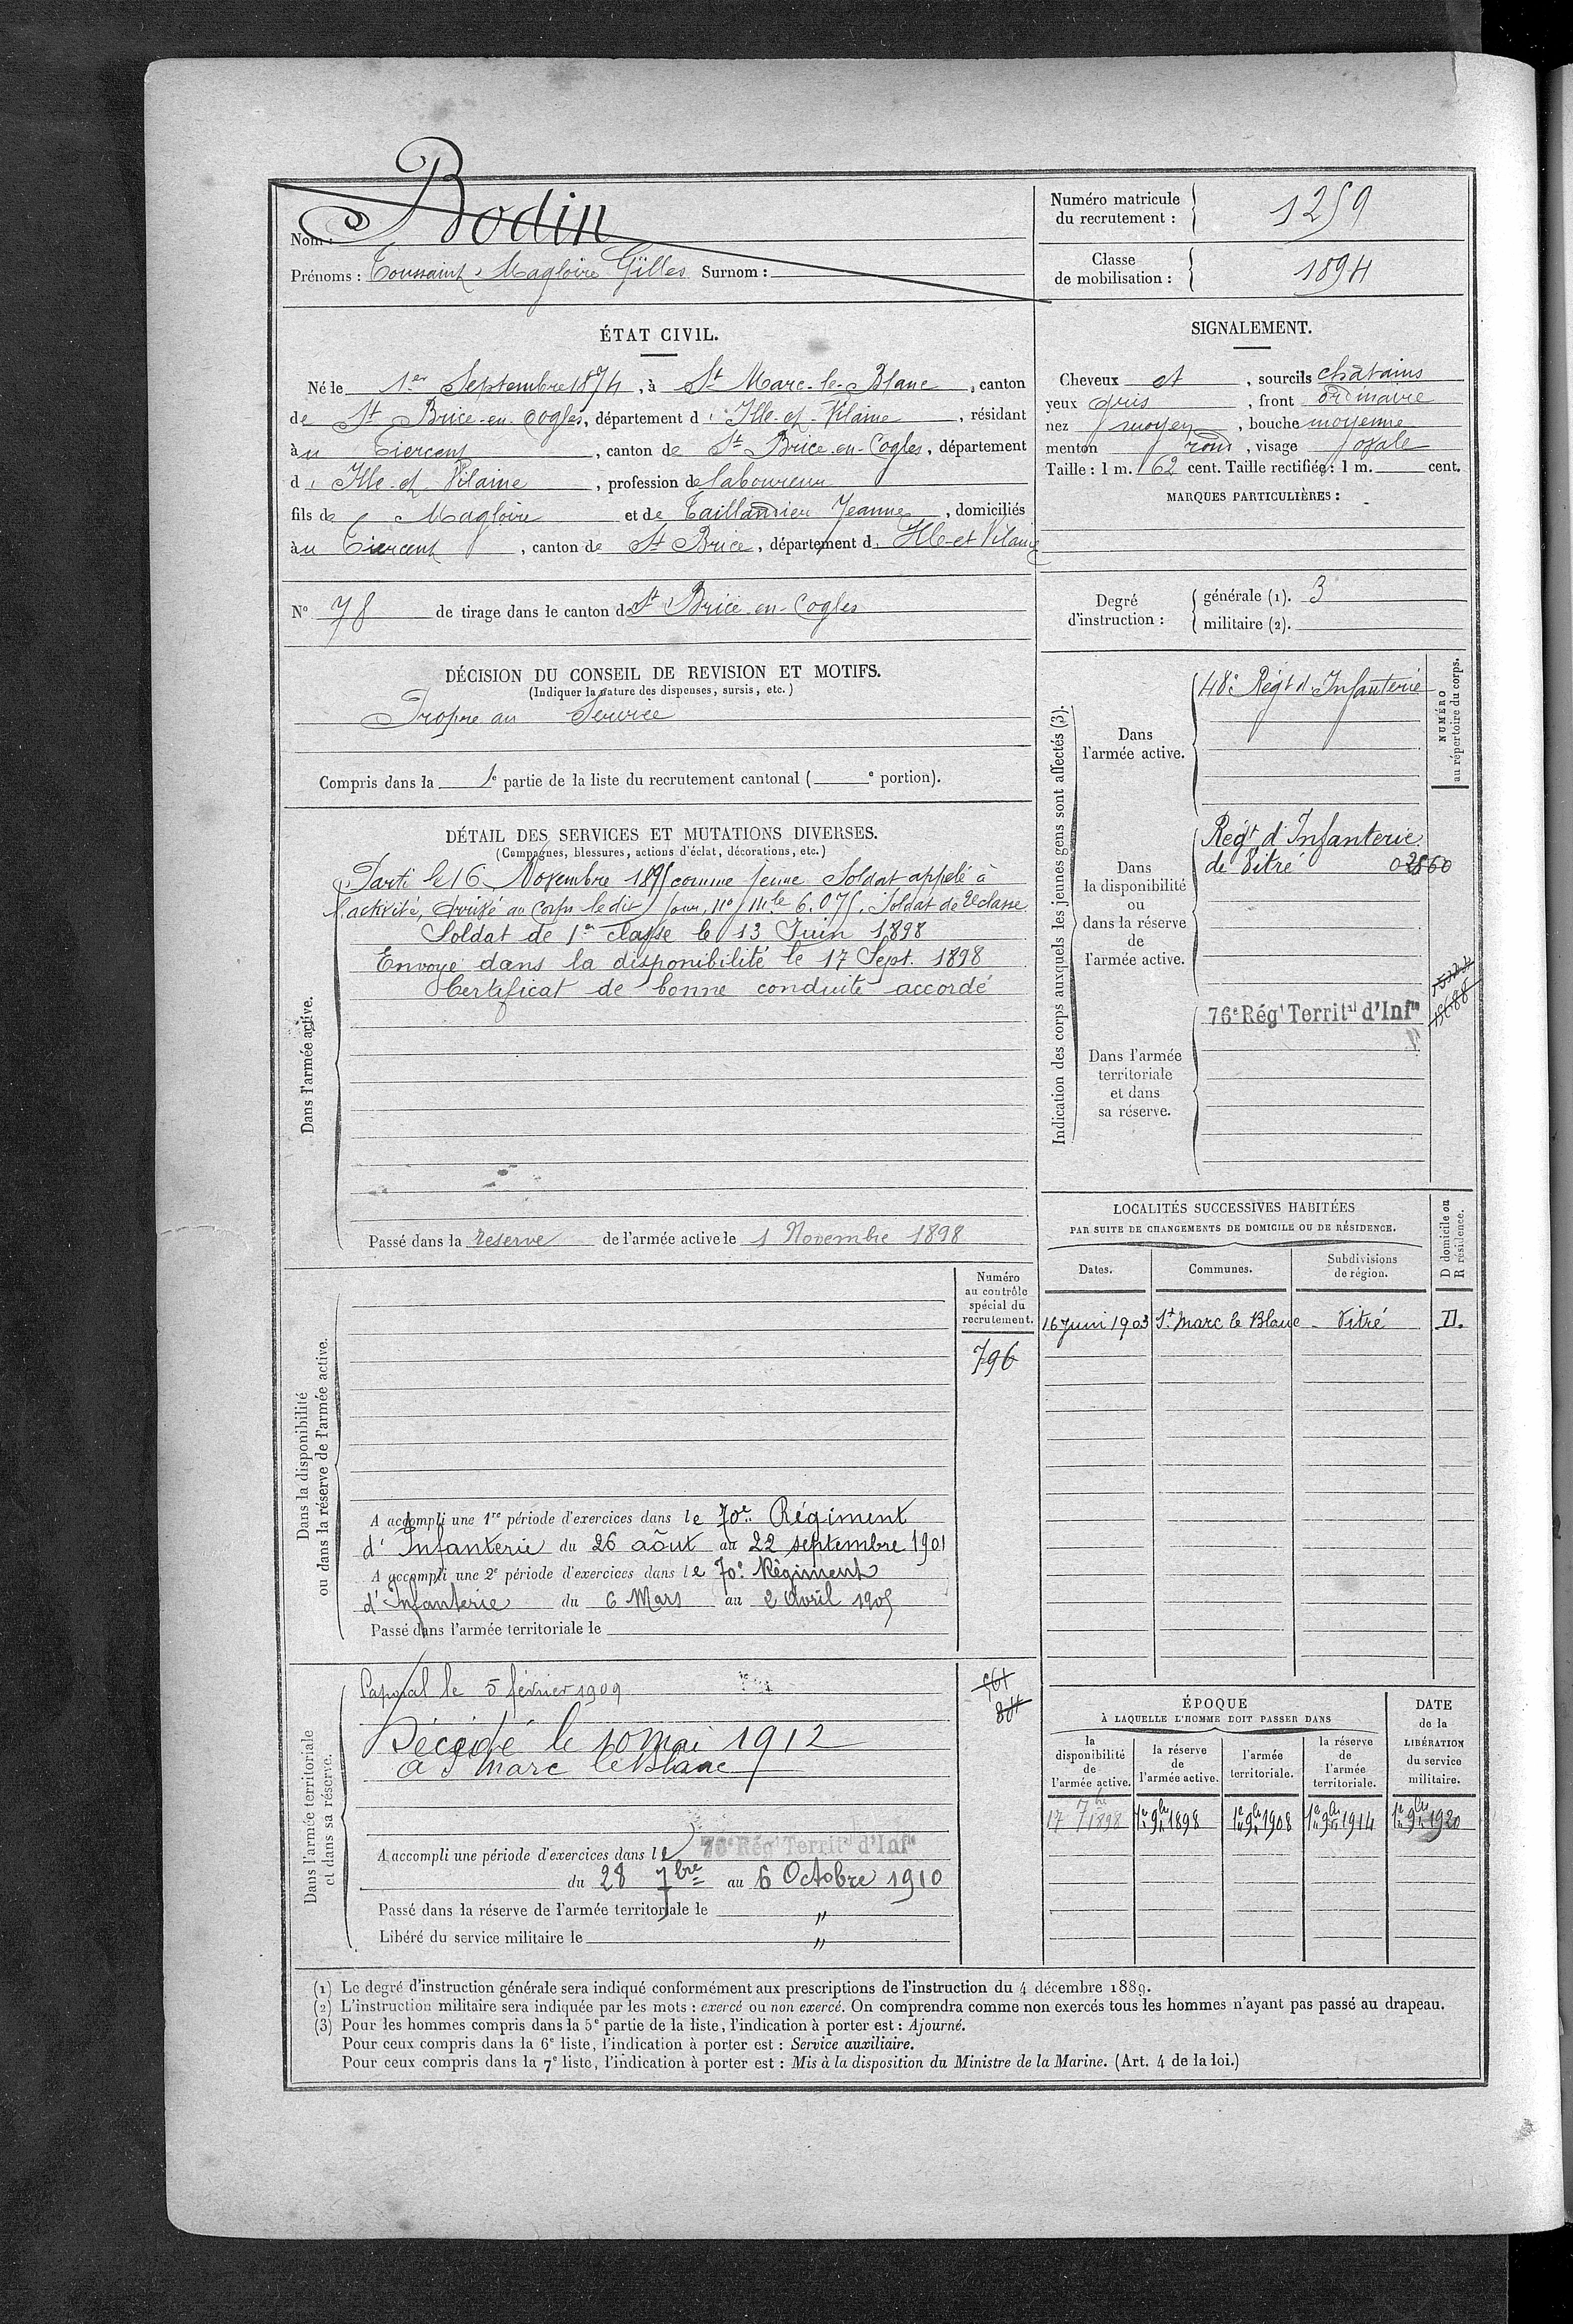 Nom : Bodin
Prénoms : Toussaint Magloire Gilles Surnom :
Numéro matricule du recrutement : 1259
Classe de mobilisation : 1894
ÉTAT CIVIL.
Né le 1er Septembre 1874, à St Marc-le-Blanc, canton
de St Brice-en-Cogles, département d'Ille-et-Vilaine, résidant
au Tiercent, canton de St Brice-en-Cogles, département
d'Ille-et-Vilaine, profession de laboureur
fils de Magloire et de Taillandier Jeanne, domiciliés
au Tiercent, canton de St Brice, département d'Ille-et-Vilaine
N° 78 de tirage dans le canton de St Brice-en-Cogles
SIGNALEMENT.
Cheveux et, sourcils châtains
yeux gris, front ordinaire
nez moyen, bouche moyenne
menton rond, visage ovale
Taille : 1 m. 62 cent. Taille rectifiée : 1 m. cent.
MARQUES PARTICULIÈRES :
Degré d'instruction : générale (1). 3
militaire (2).
DÉCISION DU CONSEIL DE REVISION ET MOTIFS.
(Indiquer la nature des dispenses, sursis, etc.)
Propre au Service
Compris dans la 1e partie de la liste du recrutement cantonal ( e portion).
DÉTAIL DES SERVICES ET MUTATIONS DIVERSES.
(Campagnes, blessures, actions d'éclat, décorations, etc.)
Dans l'armée active.
Parti le 16 Novembre 1895 comme jeune Soldat appelé à
l'activité, Arrivé au Corps le dit jour, No Mle 6.075. Soldat de 2e classe
Soldat de 1re classe le 13 Juin 1898
Envoyé dans la disponibilité le 17 Sept. 1898
Certificat de bonne conduite accordé
Passé dans la reserve de l'armée active le 1 Novembre 1898
Indication des corps auxquels les jeunes gens sont affectés (3).
NUMÉRO au répertoire du corps.
Dans l'armée active.
48e Régt d'Infanterie
Dans la disponibilité ou dans la réserve de l'armée active.
Régt d'Infanterie
de Vitré
Dans l'armée territoriale et dans sa réserve.
76e Régt Territal d'Infie
LOCALITÉS SUCCESSIVES HABITÉES
PAR SUITE DE CHANGEMENTS DE DOMICILE OU DE RÉSIDENCE.
Dates. Communes. Subdivisions de région. D domicile ou R résidence.
16 Juin 1903 St Marc le Blanc - Vitré D.
Dans la disponibilité ou dans la réserve de l'armée active.
Numéro au contrôle spécial du recrutement.
796
A accompli une 1re période d'exercices dans le 70e Régiment
d'Infanterie du 26 août au 22 septembre 1901
A accompli une 2e période d'exercices dans le 70e Régiment
d'Infanterie du 6 Mars au 2 Avril 1905
Passé dans l'armée territoriale le
Dans l'armée territoriale et dans sa réserve.
Caporal le 5 février 1909
Décédé le 10 mai 1912
à St Marc le Blanc
A accompli une période d'exercices dans le 76e Régt Territal d'Infie
du 28 7bre au 6 Octobre 1910
Passé dans la réserve de l'armée territoriale le "
Libéré du service militaire le "
ÉPOQUE
À LAQUELLE L'HOMME DOIT PASSER DANS
la disponibilité de l'armée active. la réserve de l'armée active. l'armée territoriale. la réserve de l'armée territoriale. DATE de la LIBÉRATION du service militaire.
17 7bre 1898 1er 9bre 1898 1er 9bre 1908 1er 9bre 1914 1er 9bre 1920
(1) Le degré d'instruction générale sera indiqué conformément aux prescriptions de l'instruction du 4 décembre 1889.
(2) L'instruction militaire sera indiquée par les mots : exercé ou non exercé. On comprendra comme non exercés tous les hommes n'ayant pas passé au drapeau.
(3) Pour les hommes compris dans la 5e partie de la liste, l'indication à porter est : Ajourné.
Pour ceux compris dans la 6e liste, l'indication à porter est : Service auxiliaire.
Pour ceux compris dans la 7e liste, l'indication à porter est : Mis à la disposition du Ministre de la Marine. (Art. 4 de la loi.)